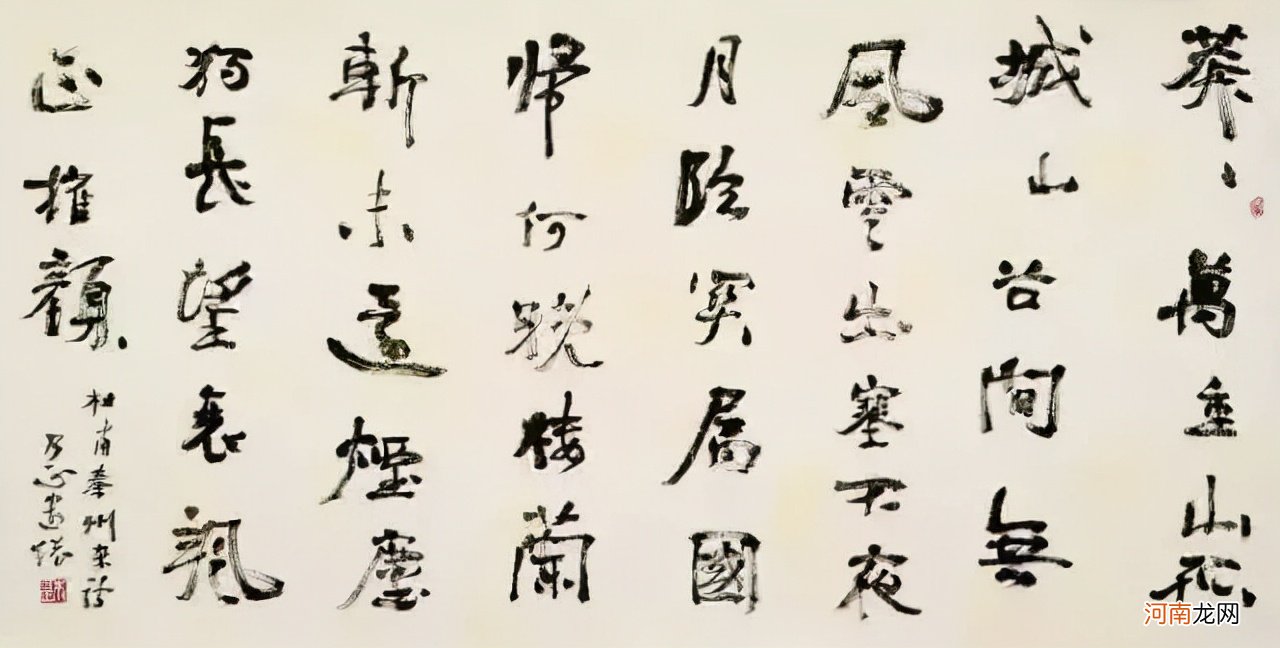 莽〻萬重山孤
城山谷間無
風雲出塞不夜
月臨関属國
帰何晚楼蘭
斬未還煙塵
獨長望衰颯
正摧顏
杜甫秦州杂詩
乃正書
河南龙网